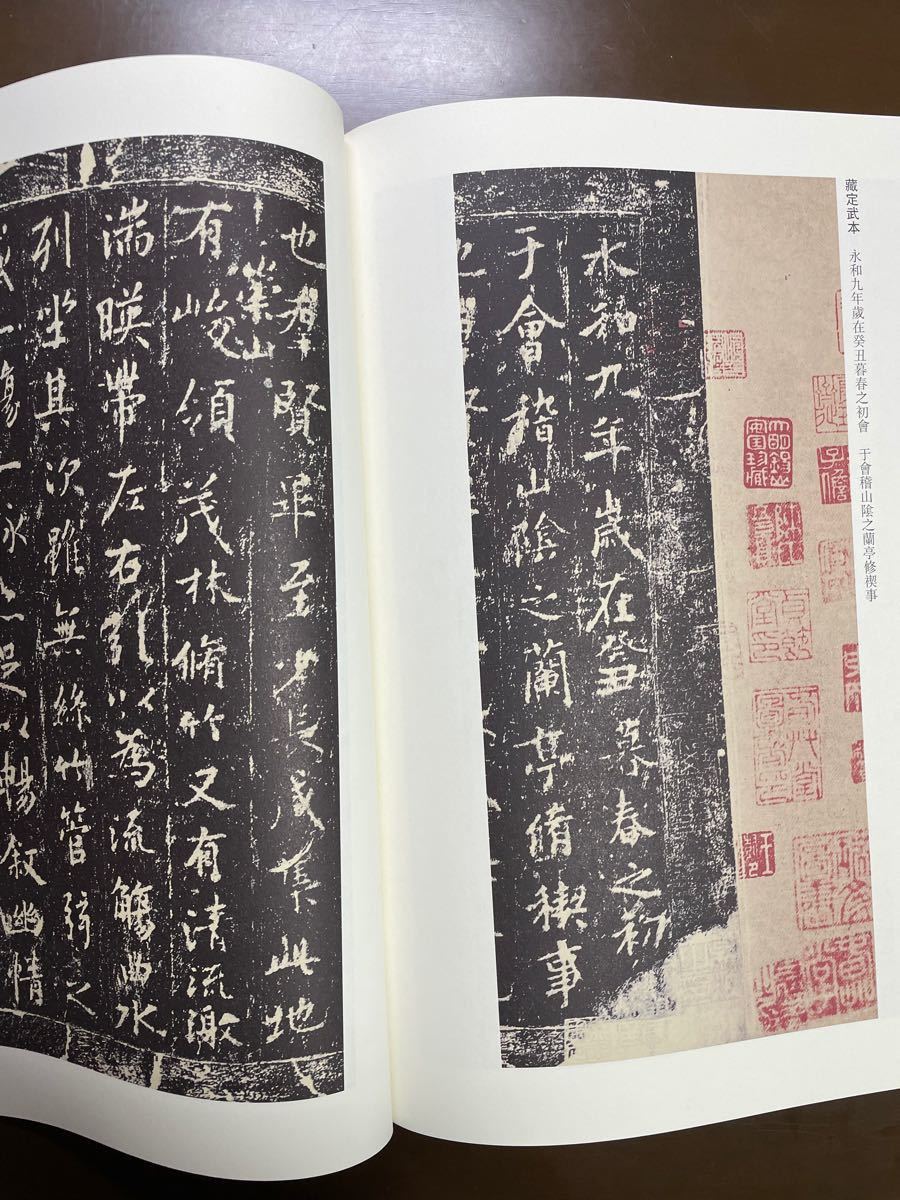 藏定武本　永和九年歲在癸丑暮春之初會　于會稽山陰之蘭亭修禊事
永和九年歲在癸丑暮春之初
于會稽山陰之蘭亭脩禊事
也羣賢畢至少長咸集此地
崇山
有峻領茂林脩竹又有清流激
湍暎帶左右引以為流觴曲水
列坐其次雖無絲竹管弦之
盛一觴一詠亦足以暢敘幽情